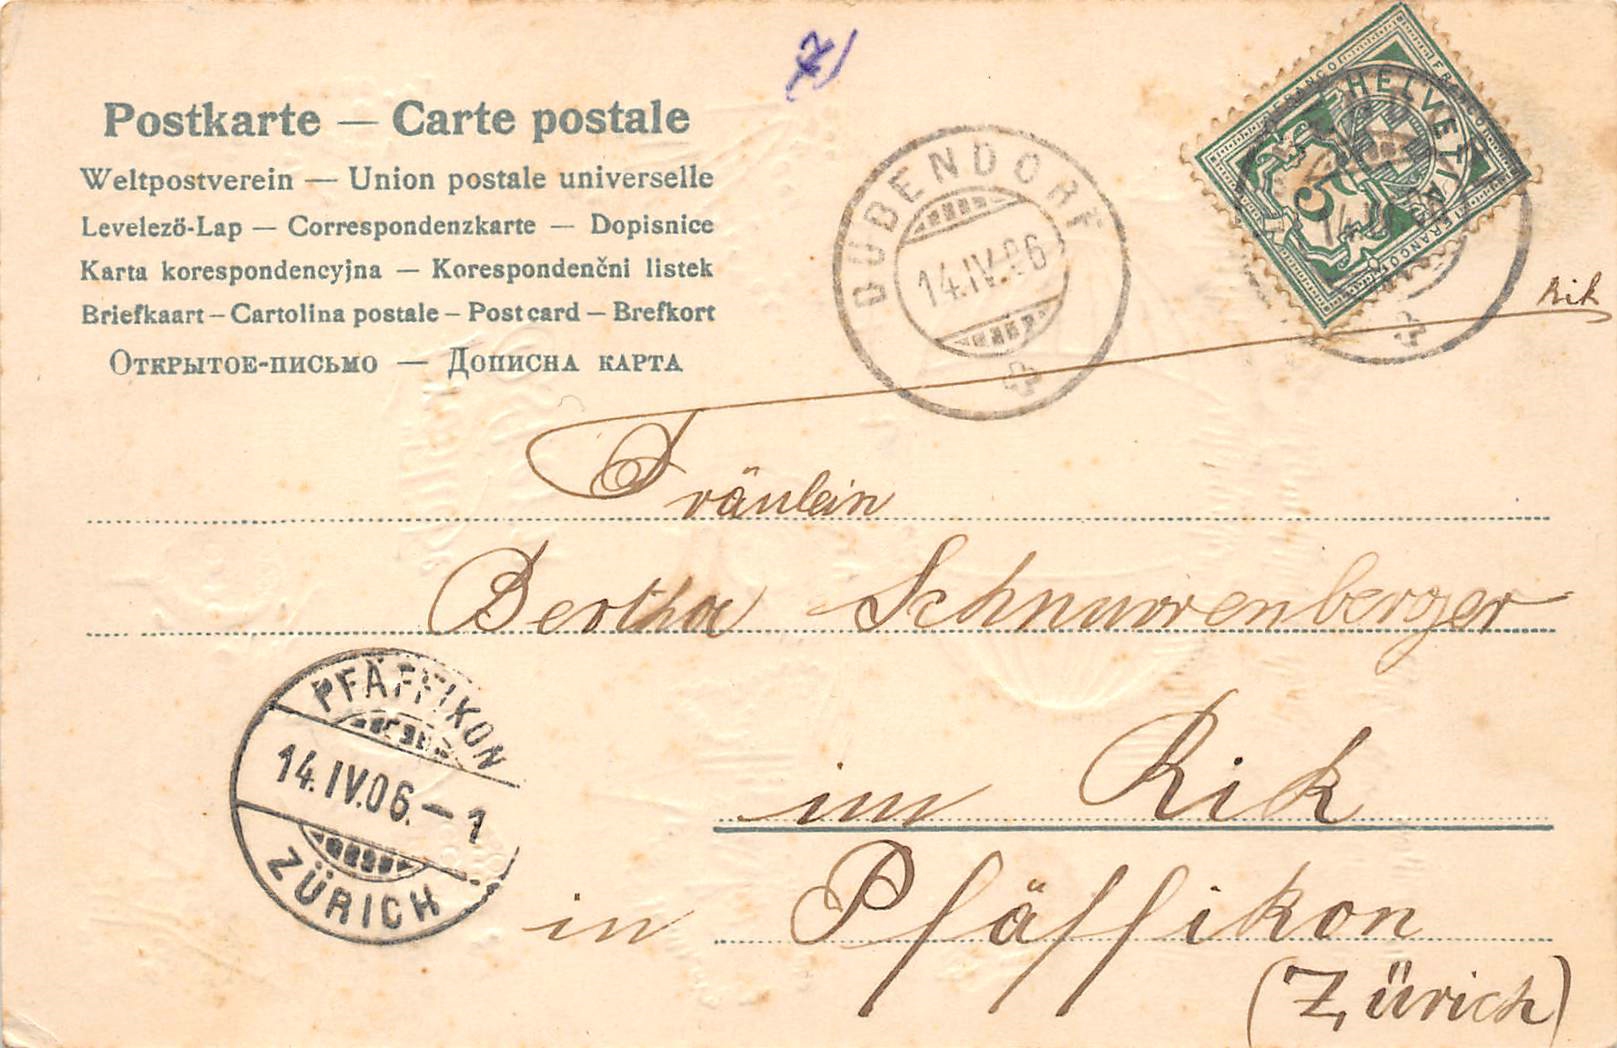 Postkarte — Carte postale
Weltpostverein — Union postale universelle
Levelező-Lap — Correspondenzkarte — Dopisnice
Karta korespondencyjna — Korespondenčni listek
Briefkaart – Cartolina postale – Postcard – Brefkort
Открытое-письмо — Дописна карта
DÜBENDORF
14.IV.06
HELVETIA
FRANCO
FRANCO
FRANCO
5
14.IV
Rik
Fräulein
Bertha Schnurrenberger
PFÄFFIKON
14.IV.06.–1
ZÜRICH
im Rik
in Pfäffikon
(Zürich)